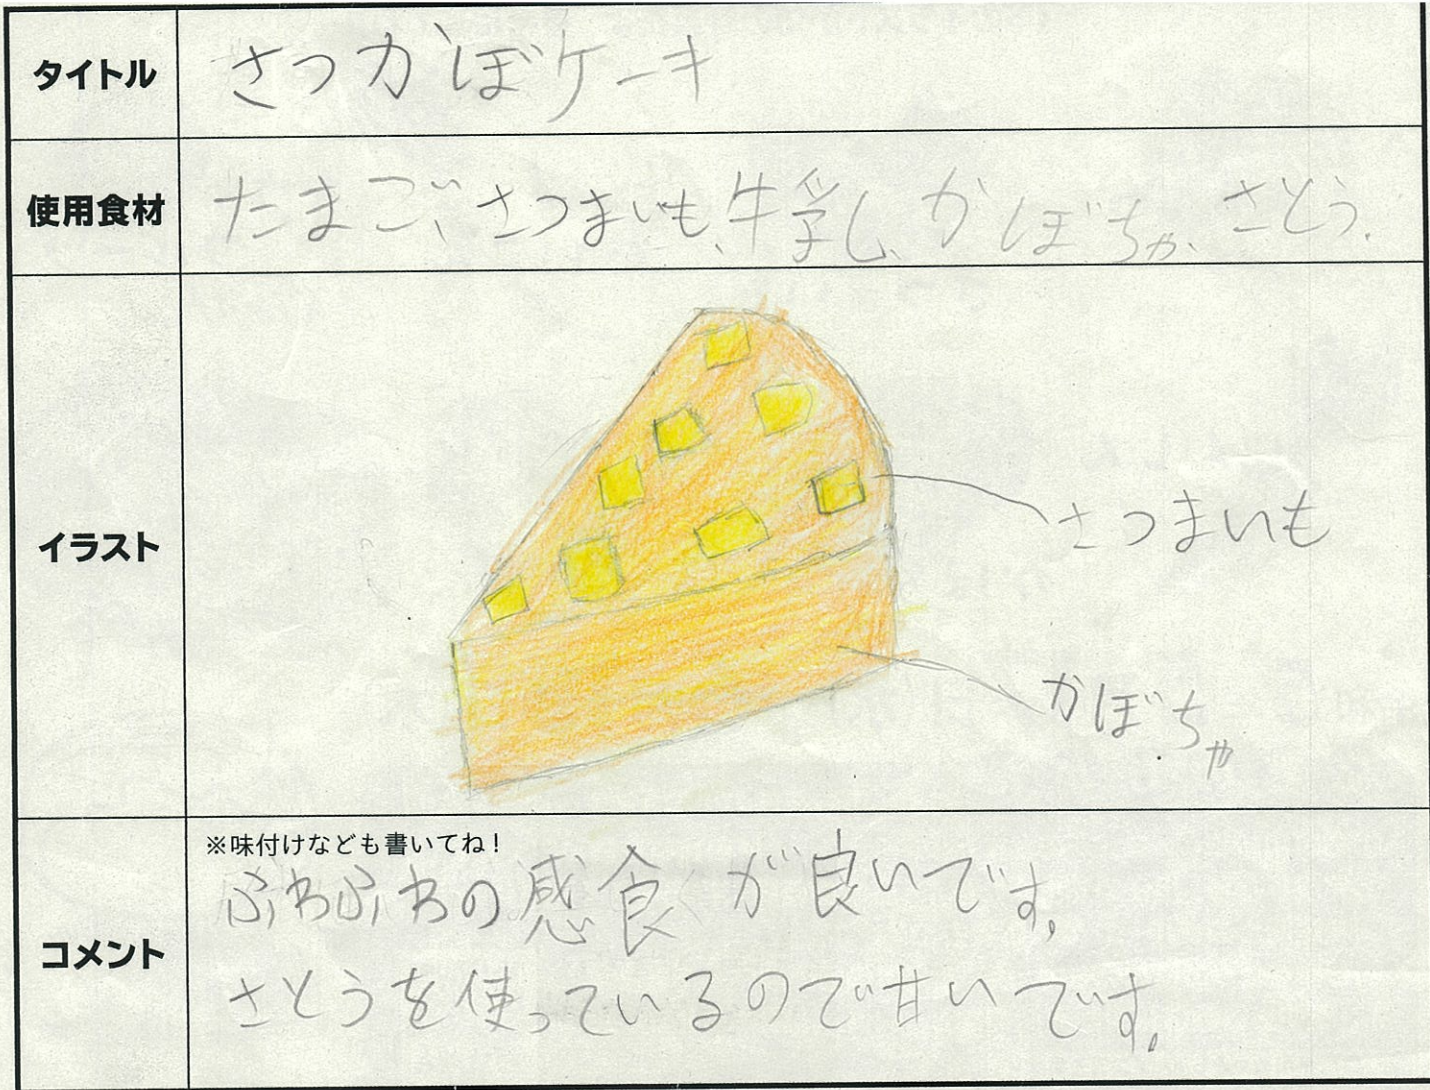 タイトル
さつかぼケーキ
使用食材
たまご、さつまいも、牛乳、かぼちゃ、さとう.
イラスト
さつまいも
かぼちゃ
コメント
※味付けなども書いてね！
ふわふわの感食が良いです。
さとうを使っているので甘いです。